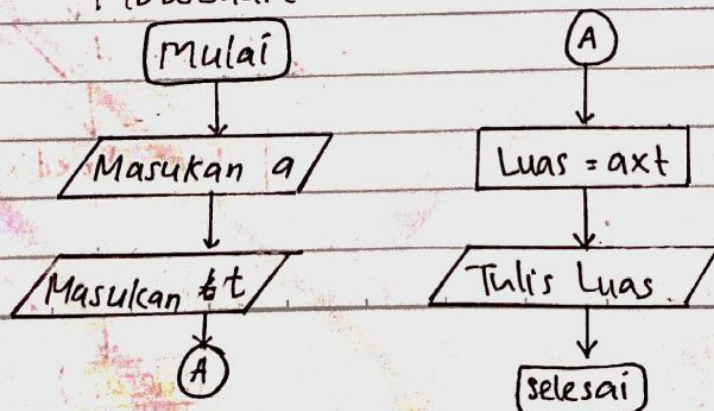 Mulai
Masukan a
Masukan t
A
A
Luas = axt
Tulis Luas
selesai